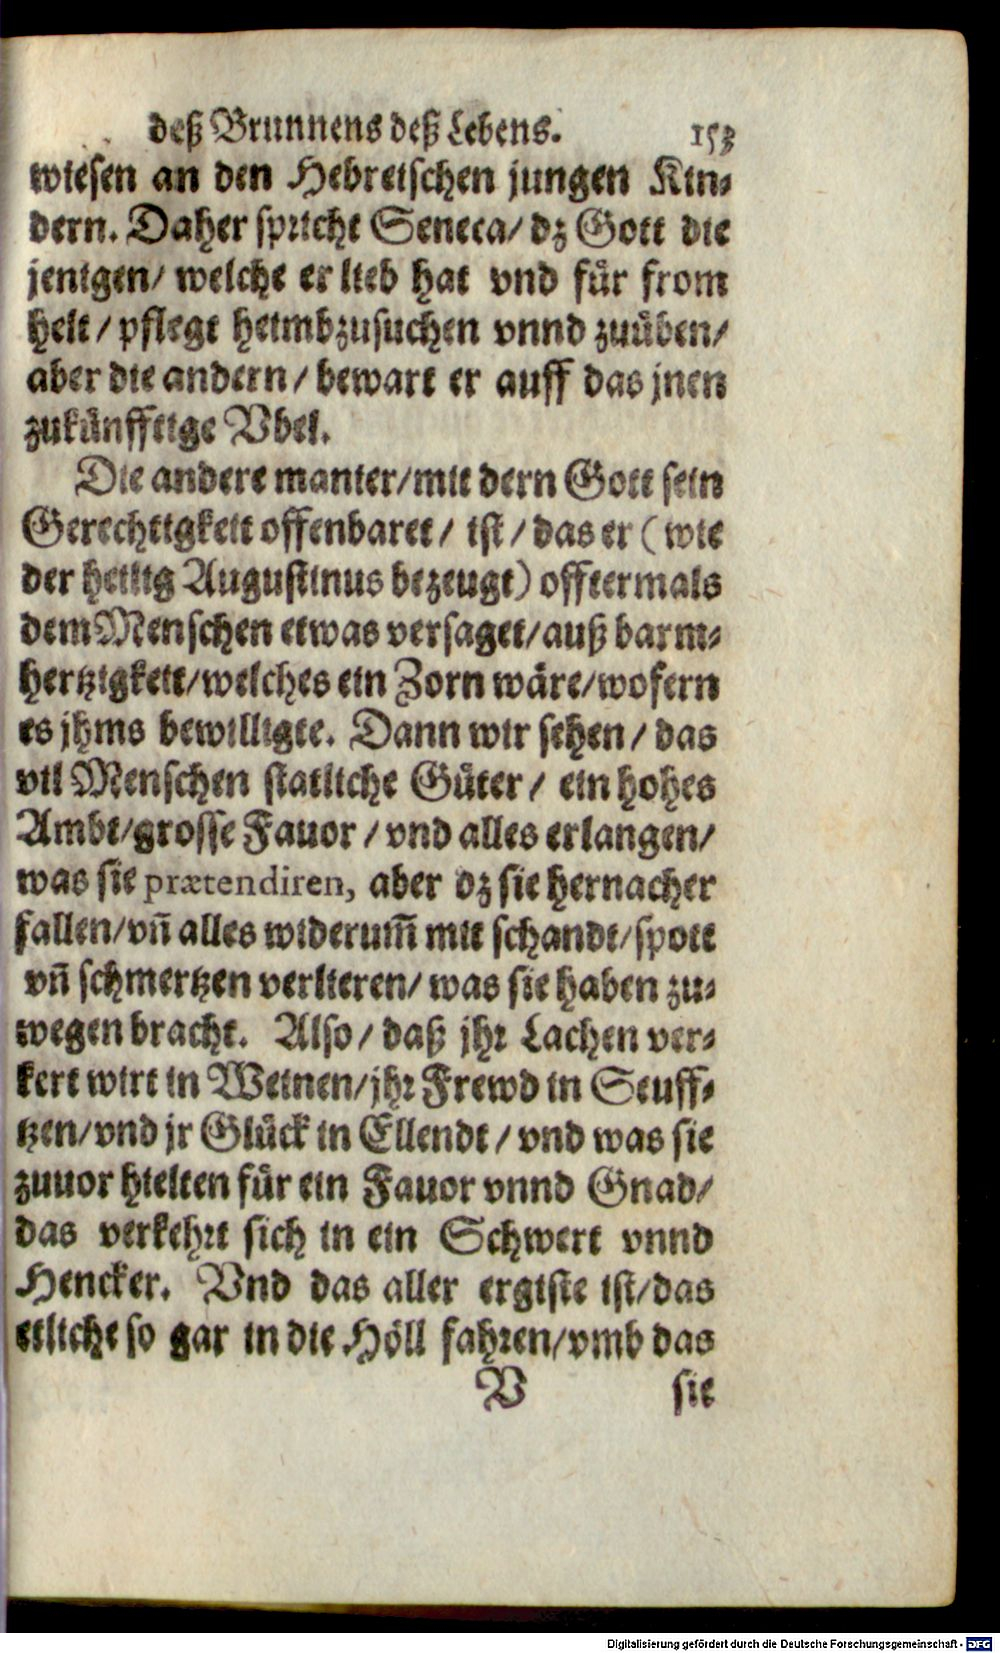 deß Brunnens deß Lebens. 153
wiesen an den Hebreischen jungen Kin-
dern. Daher spricht Seneca/ dz Gott die
jenigen/ welche er lieb hat vnd für from
helt/ pflegt heimbzusuchen vnnd zuüben/
aber die andern/ bewart er auff das jnen
zukünfftige Vbel.
Die andere manier/ mit dern Gott sein
Gerechtigkeit offenbaret/ ist/ das er (wie
der heilig Augustinus bezeugt) offtermals
dem Menschen etwas versaget/ auß barm-
hertzigkeit/ welches ein Zorn wäre/ wofern
es jhms bewilligte. Dann wir sehen/ das
vil Menschen statliche Güter/ ein hohes
Ambt/ grosse Fauor/ vnd alles erlangen/
was sie prætendiren, aber dz sie hernacher
fallen/ vñ alles widerum̃ mit schandt/ spott
vñ schmertzen verlieren/ was sie haben zu-
wegen bracht. Also/ daß jhr Lachen ver-
kert wirt in Weinen/ jhr Frewd in Seuff-
tzen/ vnd jr Glück in Ellendt/ vnd was sie
zuuor hielten für ein Fauor vnnd Gnad/
das verkehrt sich in ein Schwert vnnd
Hencker. Vnd das aller ergiste ist/ das
etliche so gar in die Höll fahren/ vmb das
V sie
Digitalisierung gefördert durch die Deutsche Forschungsgemeinschaft - DFG